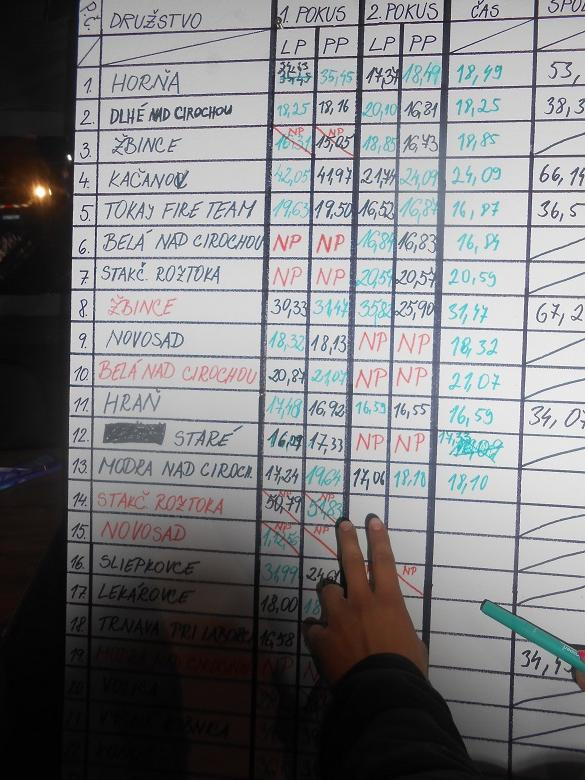 DRUŽSTVO 1. POKUS 2. POKUS ČAS
LP PP LP PP
1. HORŇA 35,45 17,37 18,49 18,49 53,
2. DLHÉ NAD CIROCHOU 18,25 18,16 20,10 16,81 18,25 38,3
3. ŽBINCE NP 16,31 NP 15,05 18,85 16,73 18,85
4. KAČANOV 42,05 41,97 21,74 24,09 24,09 66,14
5. TOKAY FIRE TEAM 19,63 19,50 16,52 16,87 16,87 36,5
6. BELÁ NAD CIROCHOU NP NP 16,84 16,83 16,84
7 STAKČ. ROZTOKA NP NP 20,59 20,57 20,59
8 ŽBINCE 30,33 31,47 35,82 25,90 31,47 67,2
9. NOVOSAD 18,32 18,13 NP NP 18,32
10. BELÁ NAD CIROCHOU 20,87 21,07 NP NP 21,07
11. HRAŇ 17,48 16,92 16,59 16,55 16,59 34,07
12. STARÉ 17,33 NP NP 17,33
13. MODRA NAD CIROCH. 17,24 19,64 17,06 18,10 18,10
14. STAKČ. ROZTOKA NP 50,79 NP 51,83
15. NOVOSAD NP NP
16. SLIEPKOVCE 31,99 NP
17. LEKÁROVCE 18,00 18
18. TRNAVA PRI LABORCI 16,58
19. MODRA NAD CIROCHOU NP 34,45
20